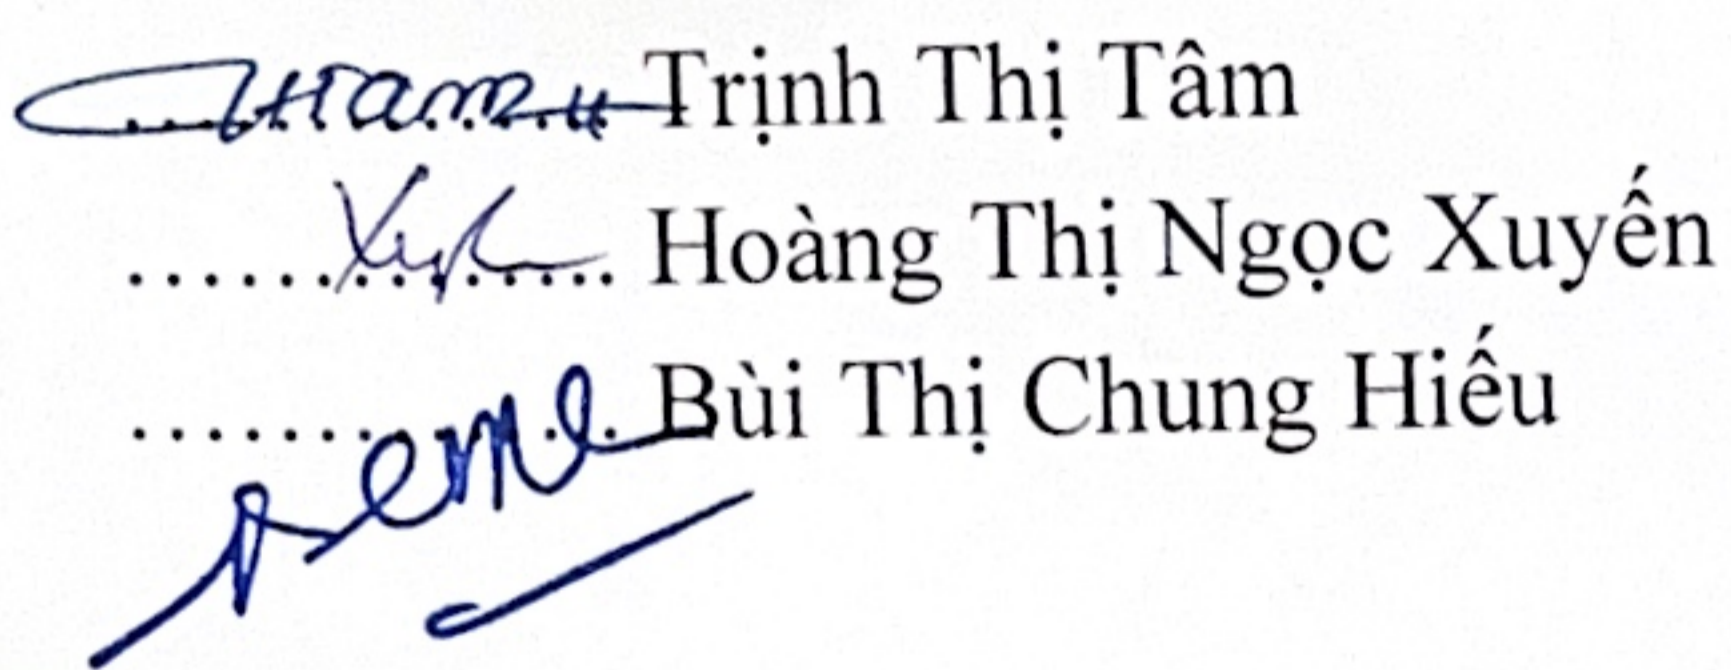 Trịnh Thị Tâm
.................... Hoàng Thị Ngọc Xuyến
.................... Bùi Thị Chung Hiếu